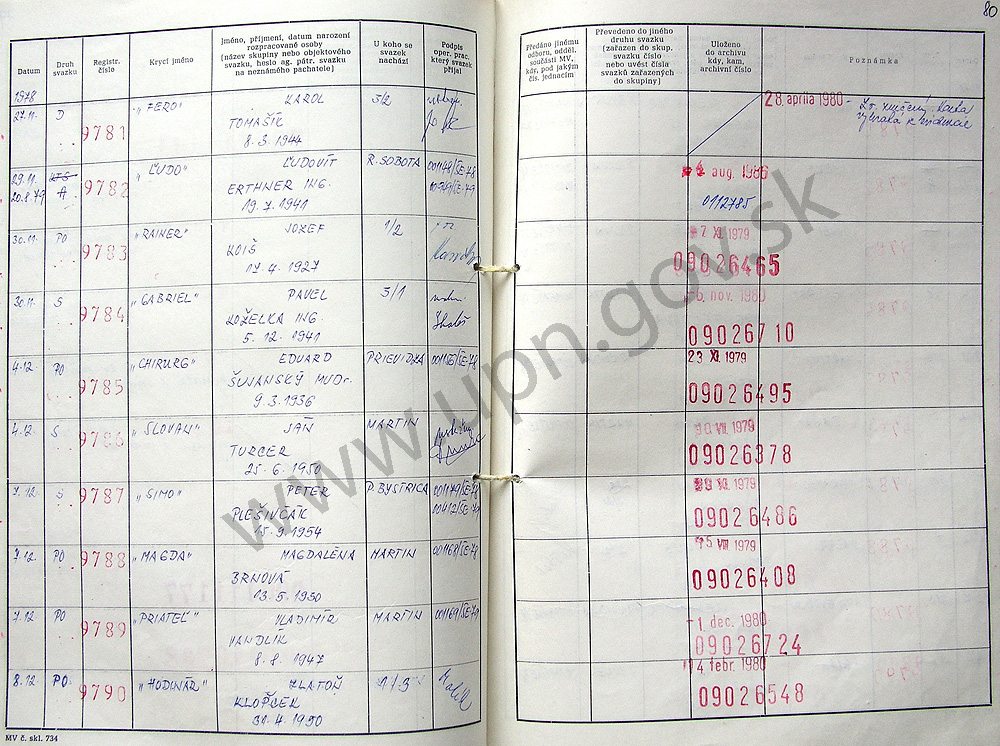 80
Datum
Druh svazku
Registr. číslo
Krycí jméno
Jméno, příjmení, datum narození
rozpracované osoby
(název skupiny nebo objektového
svazku, heslo ag. pátr. svazku
na neznámého pachatele)
U koho se
svazek
nachází
Podpis
oper. prac.
který svazek
přijal
Předáno jinému
odboru, odděl.
součásti MV,
kdy, pod jakým
čís. jednacím
Převedeno do jiného
druhu svazku
(zařazen do skup.
svazku číslo
nebo uvést čísla
svazků zařazených
do skupiny)
Uloženo
do archivu
kdy, kam,
archivní číslo
Poznámka
1978
27.11. D 9781 "FERO" KAROL 3/2
TOMAŠÍK
8. 3. 1944
28. apríla 1980
29.11. KTS 9782 "ĽUDO" ĽUDOVÍT R. SOBOTA
20.8.79 A ERTHNER ING.
19. 7. 1941
aug. 1986
0112785
30.11. PO 9783 "RAINER" JOZEF 1/2
KOIŠ
17. 4. 1927
7 XI 1979
09026465
30.11. S 9784 "GABRIEL" PAVEL 3/1
KOŽELKA ING.
5. 12. 1941
nov. 1980
09026710
4.12 PO 9785 "CHIRURG" EDUARD PRIEVIDZA
ŠUJANSKÝ MUDr.
9. 3. 1936
23 XI 1979
09026495
4.12. S 9786 "SLOVAN" JÁN MARTIN
TURCER
25. 6. 1950
VII 1979
09026378
7.12. S 9787 "SIMO" PETER P. BYSTRICA
PLEŠIVČÁK
15. 9. 1954
XI 1979
09026486
7.12. PO 9788 "MAGDA" MAGDALÉNA MARTIN
BRNOVÁ
13. 5. 1950
VIII 1979
09026408
7.12 PO 9789 "PRIATEĽ" VLADIMÍR MARTIN
HANDLIK
8. 8. 1947
1. dec. 1980
09026724
8.12 PO 9790 "HODINÁR" ZLATOŇ 1/3
KLOPČEK
4 febr. 1980
09026548
MV č. skl. 734
www.upn.gov.sk